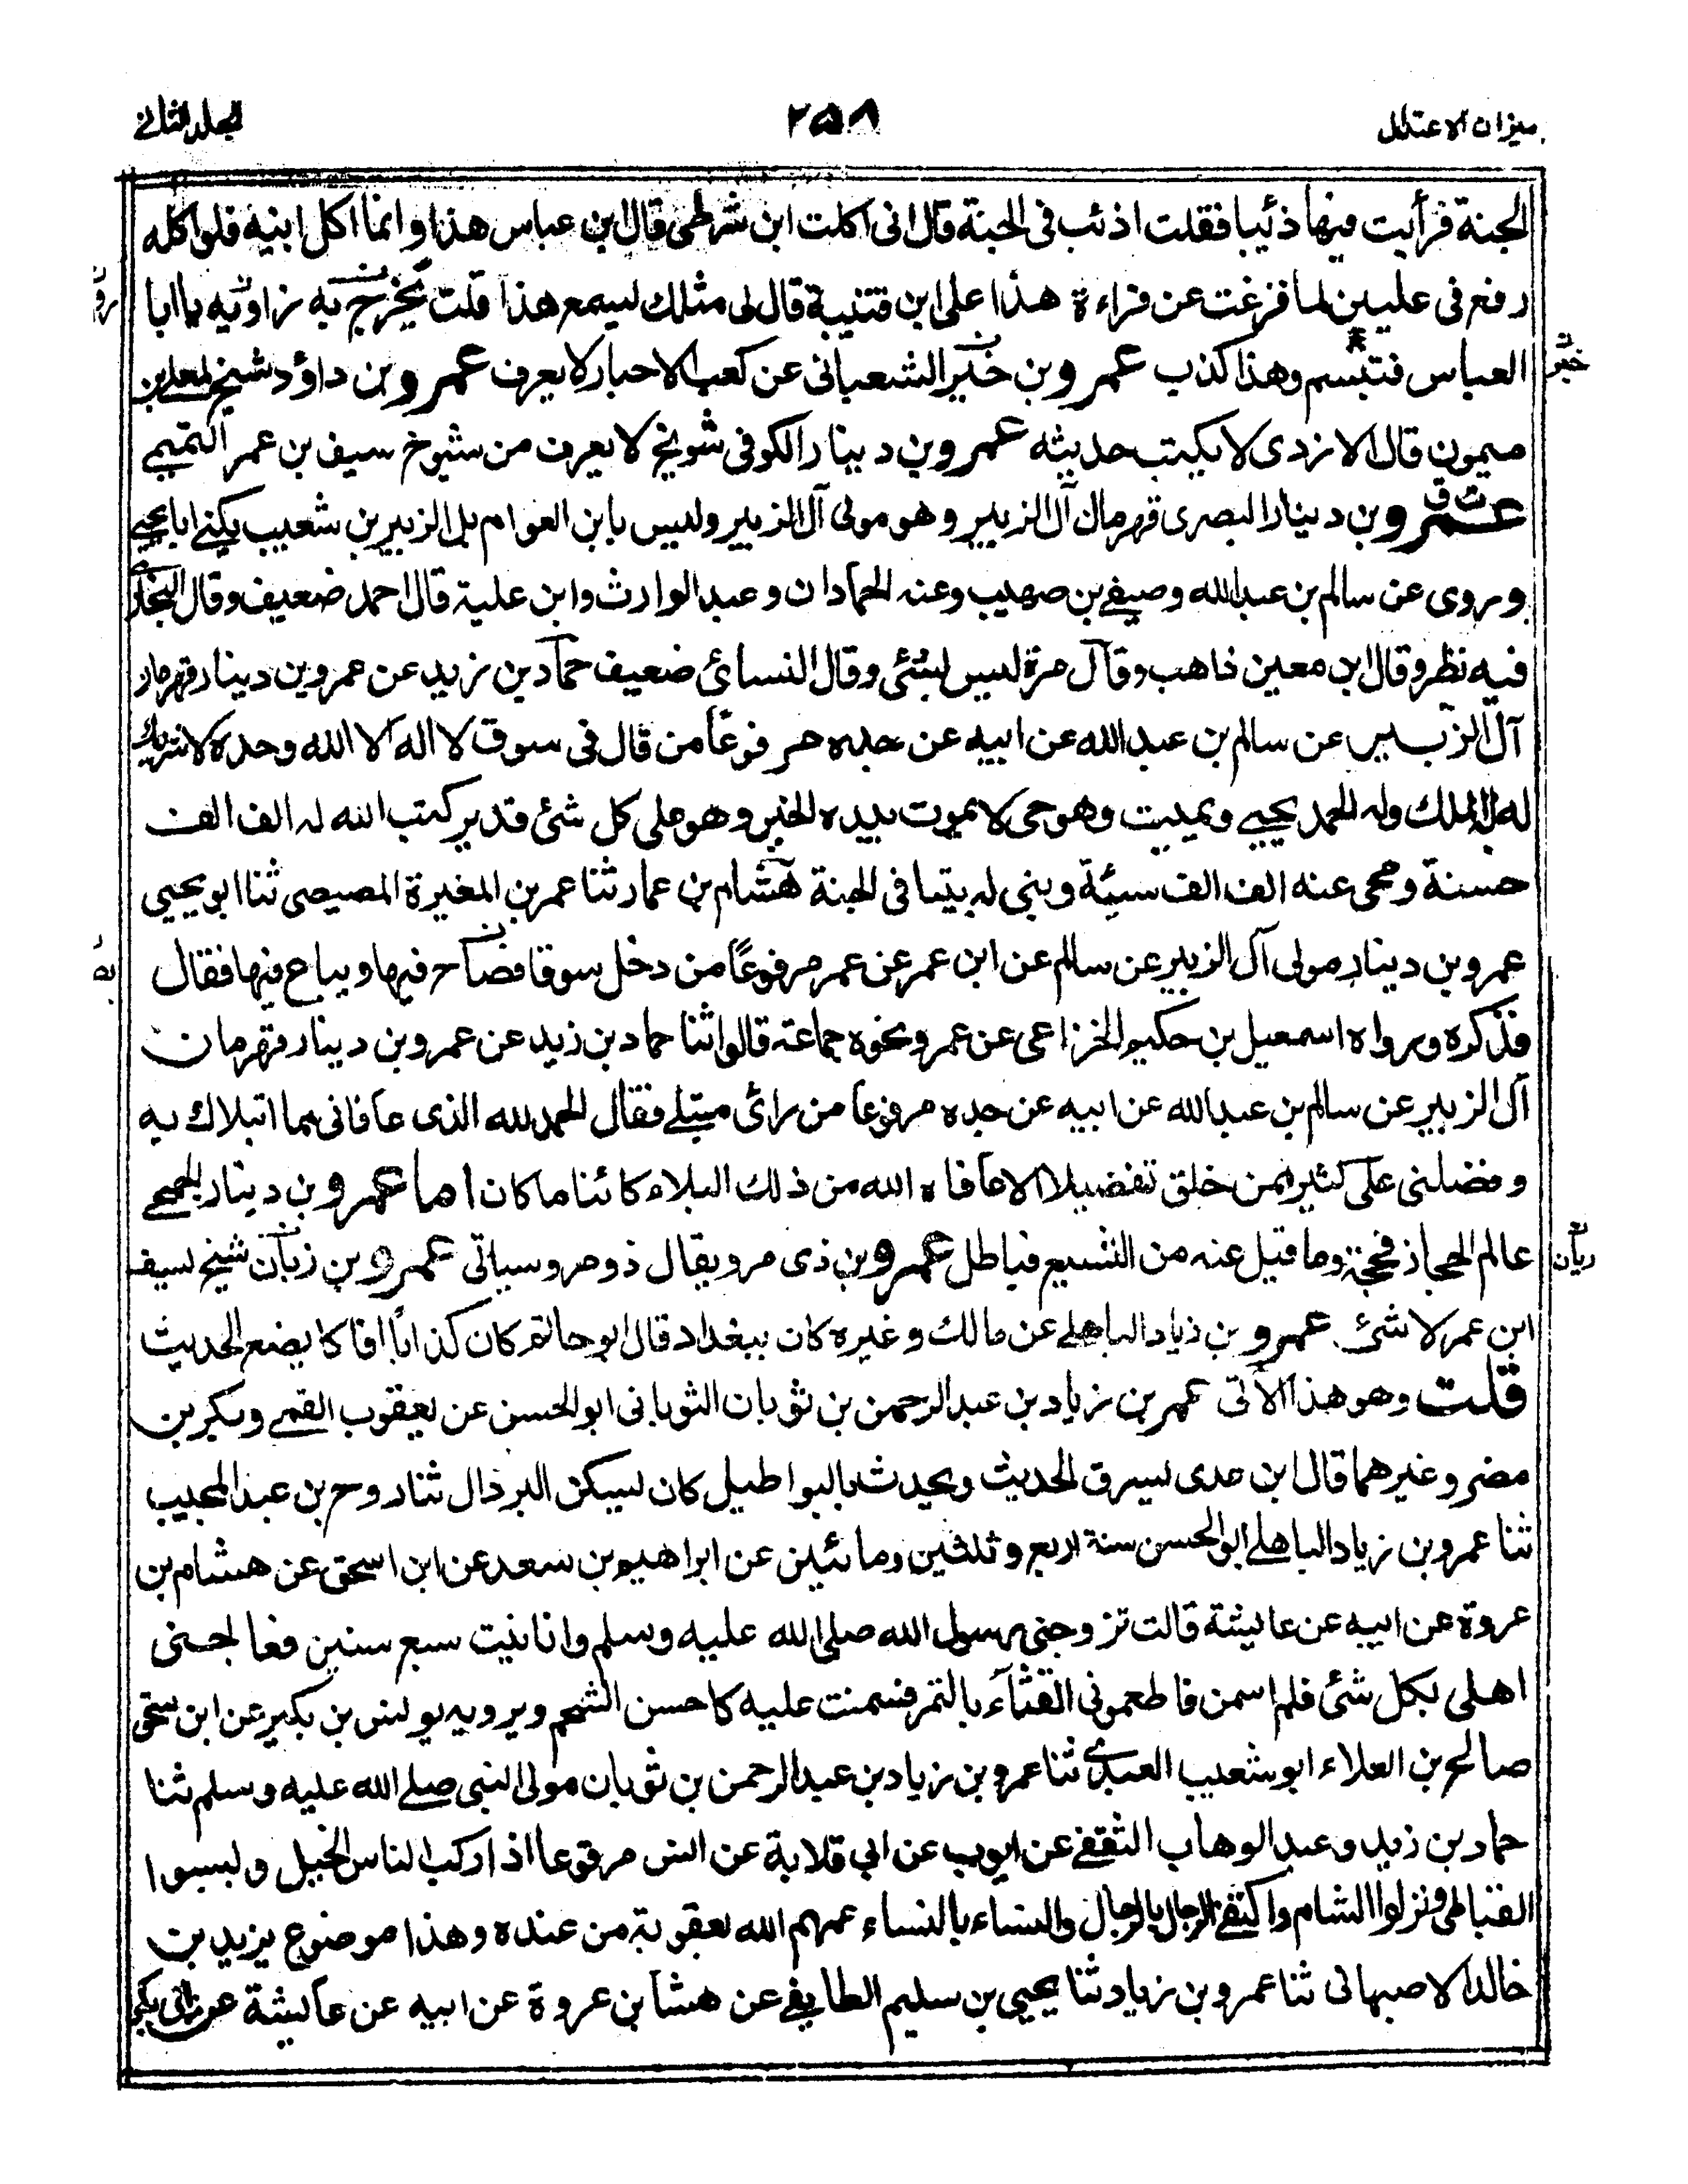 ميزان الاعتدال
٢٥٨
الجلد الثانى
الجنة فرأيت فيها ذئيبا فقلت اذئب فى الجنة قال انى اكلت ابن شرطى قال ابن عباس هذا وانما اكل ابنيه فلو اكله
رفع فى عليين لما فرغت عن قراءة هذا على ابن قتيبة قال لى مثلك ليسمع هذا قلت يخرج به زاويه يا ابا
خبير
العباس فتبسم وهذا كذب عمرو بن خنير الشعبانى عن كعب الاحبار لا يعرف عمرو بن داؤد شيخ لمعلى بن
ميمون قال الازدى لا يكتب حديثه عمرو بن دينار الكوفى شويخ لا يعرف من شيوخ سيف بن عمر التميمى
عمرو بن دينار البصرى قهرمان آل الزبير وهو مولى آل الزبير وليس بابن العوام بل الزبير بن شعيب يكنى ابا يحيى
وروى عن سالم بن عبد الله وصيفى بن صهيب وعنه الحمادان وعبد الوارث وابن علية قال احمد ضعيف وقال البخارى
فيه نظر وقال ابن معين ذاهب وقال مرة ليس بشئى وقال النسائى ضعيف حماد بن زيد عن عمرو بن دينار قهرمان
آل الزبير عن سالم بن عبد الله عن ابيه عن جده مرفوعًا من قال فى سوق لا اله الا الله وحده لا شريك
له له الملك وله الحمد يحيى ويميت وهو حى لا يموت بيده الخير وهو على كل شئ قدير كتب الله له الف الف
حسنة ومحى عنه الف الف سيئة وبنى له بيتا فى الجنة هشام بن عمار ثنا عمر بن المغيرة المصيصى ثنا ابو يحيى
عمرو بن دينار مولى آل الزبير عن سالم عن ابن عمر عن عمر مرفوعًا من دخل سوقا فصاح فيها ويباع فيها فقال
فذكره ورواه اسمعيل بن حكيم الخزاعى عن عمر ونحوه جماعة قالوا ثنا حماد بن زيد عن عمرو بن دينار قهرمان
آل الزبير عن سالم بن عبد الله عن ابيه عن جده مرفوعا من رأى مبتلى فقال الحمد لله الذى عافانى مما ابتلاك به
وفضلنى على كثير ممن خلق تفضيلا الا عافاه الله من ذلك البلاء كائنا ما كان اما عمرو بن دينار الجمحى
عالم الحجاز فحجة وما قيل عنه من التشيع فباطل عمرو بن ذى مر ويقال ذو مر وسياتى عمرو بن زبان شيخ لسيف
ريان
ابن عمر لا شئ عمرو بن زياد الباهلى عن مالك وغيره كان ببغداد قال ابو حاتم كان كذابا افاكا يضع الحديث
قلت وهو هذا الآتى عمر بن زياد بن عبد الرحمن بن ثوبان الثوبانى ابو الحسن عن يعقوب القمى وبكر بن
مضر وغيرهما قال ابن عدى ليسرق الحديث ويحدث بالبواطيل كان ليسكن البردال ثنا روح بن عبد المجيب
ثنا عمرو بن زياد الباهلى ابو الحسن سنة اربع وثلثين ومائتين عن ابراهيم بن سعد عن ابن اسحق عن هشام بن
عروة عن ابيه عن عايشة قالت تزوجنى رسول الله صلى الله عليه وسلم وانا بنت سبع سنين فعالجنى
اهلى بكل شئى فلم اسمن فاطعمونى القثاء بالتمر فسمنت عليه كاحسن الشحم ويرويه يونس بن بكير عن ابن سحق
صالح بن العلاء ابو شعيب العبدى ثنا عمرو بن زياد بن عبد الرحمن بن ثوبان مولى النبى صلى الله عليه وسلم ثنا
حماد بن زيد وعبد الوهاب الثقفى عن ايوب عن ابي قلابة عن انس مرفوعا اذا ركب الناس الخيل ولبسوا
القباطى ونزلوا الشام واكتفى الرجال بالرجال والنساء بالنساء عمهم الله بعقوبة من عنده وهذا موضوع يزيد بن
خالد الاصبهانى ثنا عمرو بن زياد ثنا يحيى بن سليم الطايفى عن هشا بن عروة عن ابيه عن عايشة عن ابى بكر